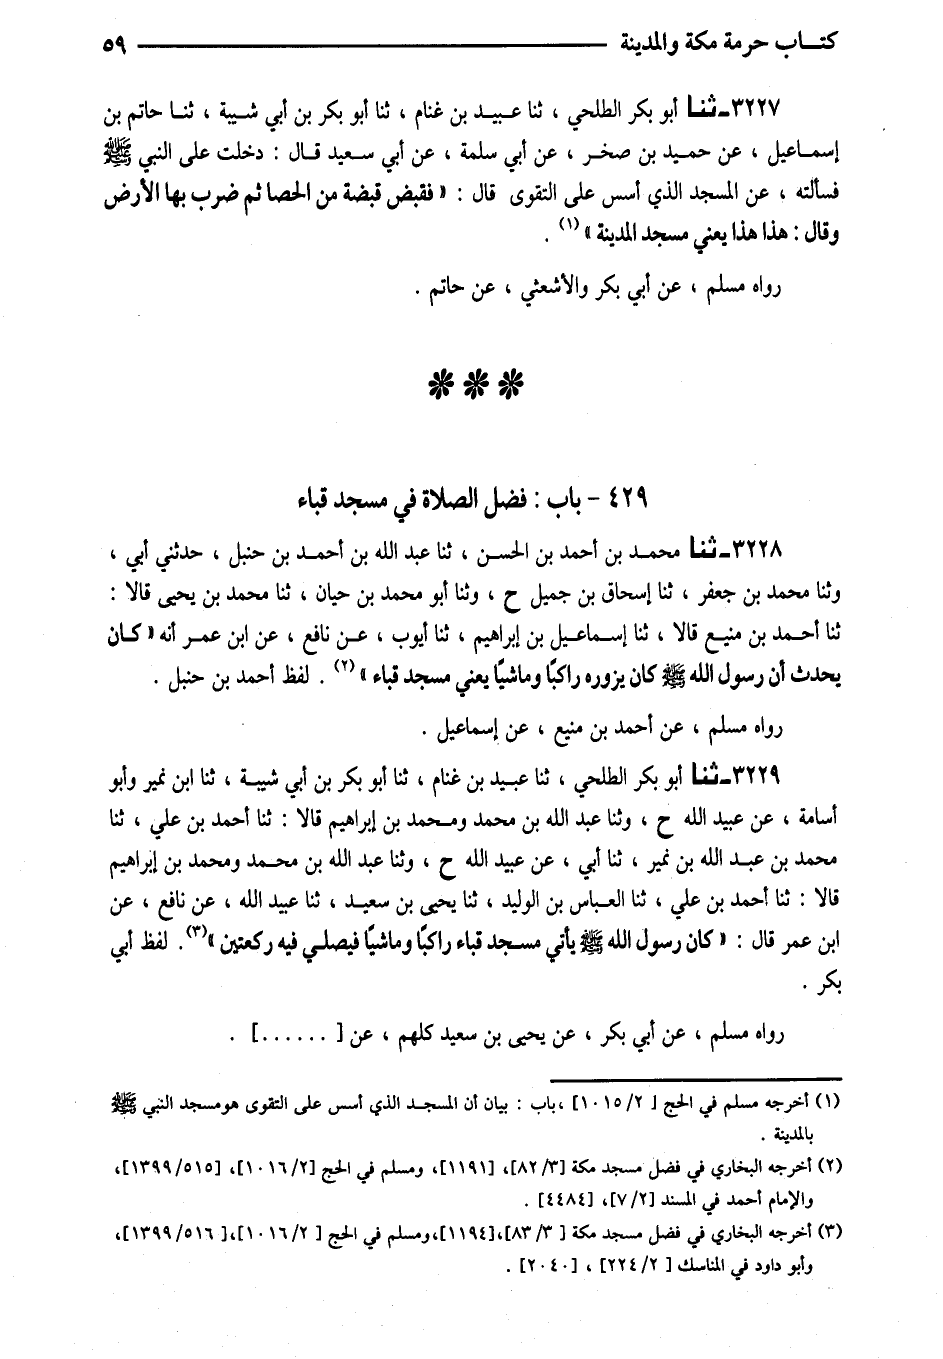 كتاب حرمة مكة والمدينة ٥٩
٣٢٢٧ـ ثنا أبو بكر الطلحي ، ثنا عبيد بن غنام ، ثنا أبو بكر بن أبي شيبة ، ثنا حاتم بن
إسماعيل ، عن حميد بن صخر ، عن أبي سلمة ، عن أبي سعيد قال : دخلت على النبي ﷺ
فسألته ، عن المسجد الذي أسس على التقوى قال : « فقبض قبضة من الحصا ثم ضرب بها الأرض
وقال : هذا هذا يعني مسجد المدينة » (١) .
رواه مسلم ، عن أبي بكر والأشعثي ، عن حاتم .
٤٢٩ - باب : فضل الصلاة في مسجد قباء
٣٢٢٨ـ ثنا محمد بن أحمد بن الحسن ، ثنا عبد الله بن أحمد بن حنبل ، حدثني أبي ،
وثنا محمد بن جعفر ، ثنا إسحاق بن جميل ح ، وثنا أبو محمد بن حيان ، ثنا محمد بن يحيى قالا :
ثنا أحمد بن منيع قالا ، ثنا إسماعيل بن إبراهيم ، ثنا أيوب ، عن نافع ، عن ابن عمر أنه « كان
يحدث أن رسول الله ﷺ كان يزوره راكبًا وماشيًا يعني مسجد قباء » (٢) . لفظ أحمد بن حنبل .
رواه مسلم ، عن أحمد بن منيع ، عن إسماعيل .
٣٢٢٩ـ ثنا أبو بكر الطلحي ، ثنا عبيد بن غنام ، ثنا أبو بكر بن أبي شيبة ، ثنا ابن نمير وأبو
أسامة ، عن عبيد الله ح ، وثنا عبد الله بن محمد ومحمد بن إبراهيم قالا : ثنا أحمد بن علي ، ثنا
محمد بن عبد الله بن نمير ، ثنا أبي ، عن عبيد الله ح ، وثنا عبد الله بن محمد ومحمد بن إبراهيم
قالا : ثنا أحمد بن علي ، ثنا العباس بن الوليد ، ثنا يحيى بن سعيد ، ثنا عبيد الله ، عن نافع ، عن
ابن عمر قال : « كان رسول الله ﷺ يأتي مسجد قباء راكبًا وماشيًا فيصلي فيه ركعتين » (٣). لفظ أبي
بكر .
رواه مسلم ، عن أبي بكر ، عن يحيى بن سعيد كلهم ، عن [ ......] .
(١) أخرجه مسلم في الحج [ ٢/ ١٠١٥] ،باب : بيان أن المسجد الذي أسس على التقوى هومسجد النبي ﷺ
بالمدينة .
(٢) أخرجه البخاري في فضل مسجد مكة [٣/ ٨٢]، [١١٩١]، ومسلم في الحج [٢/ ١٠١٦]، [٥١٥/ ١٣٩٩]،
والإمام أحمد في المسند [٢/ ٧]، [٤٤٨٤] .
(٣) أخرجه البخاري في فضل مسجد مكة [ ٣/ ٨٣]،[١١٩٤]،ومسلم في الحج [ ٢/ ١٠١٦]،[ ٥١٦/ ١٣٩٩]،
وأبو داود في المناسك [ ٢/ ٢٢٤] ، [٢٠٤٠] .